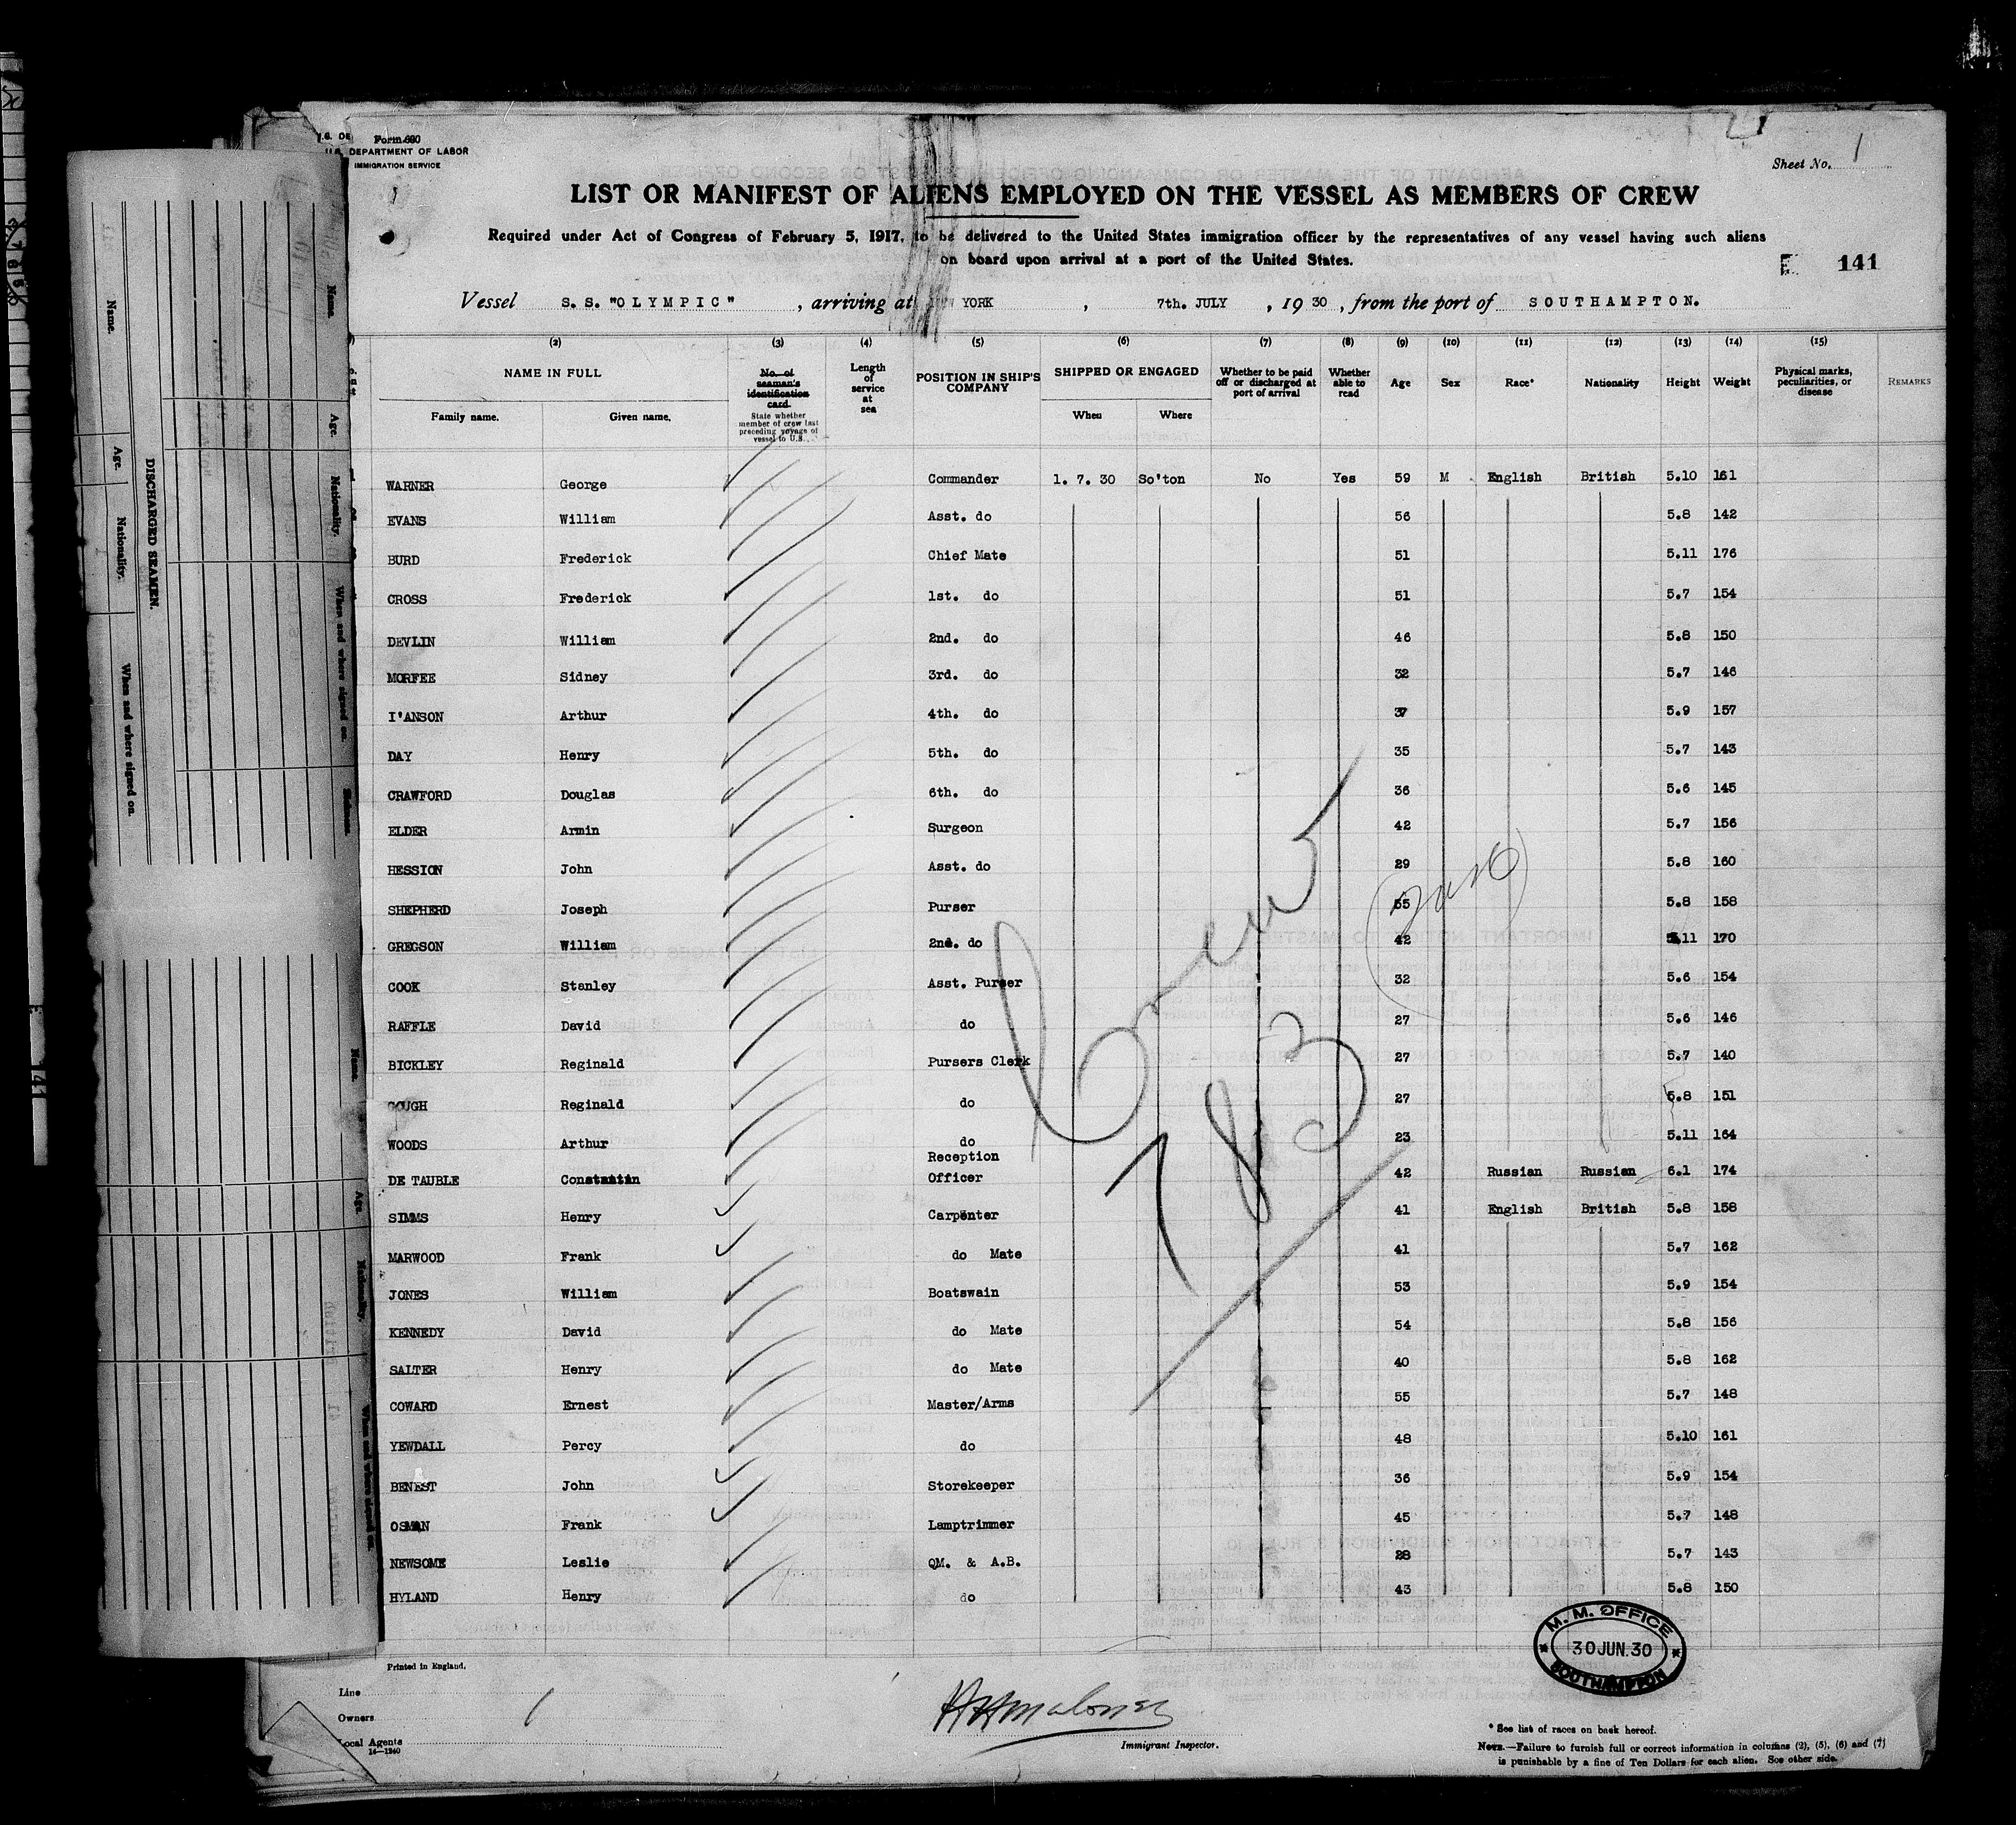 Form 680
U.S. DEPARTMENT OF LABOR
IMMIGRATION SERVICE
Sheet No. 1
LIST OR MANIFEST OF ALIENS EMPLOYED ON THE VESSEL AS MEMBERS OF CREW
Required under Act of Congress of February 5, 1917, to be delivered to the United States immigration officer by the representatives of any vessel having such aliens
on board upon arrival at a port of the United States.
E 141
Vessel S. S. "OLYMPIC", arriving at NEW YORK, 7th. JULY, 1930, from the port of SOUTHAMPTON.
(2) (3) (4) (5) (6) (7) (8) (9) (10) (11) (12) (13) (14) (15)
NAME IN FULL
Family name. Given name.
No. of seaman's identification card.
State whether member of crew last preceding voyage of vessel to U.S.
Length of service at sea
POSITION IN SHIP'S COMPANY
SHIPPED OR ENGAGED
When Where
Whether to be paid off or discharged at port of arrival
Whether able to read
Age Sex Race* Nationality Height Weight
Physical marks, peculiarities, or disease
REMARKS
WARNER George Commander 1. 7. 30 So'ton No Yes 59 M English British 5.10 161
EVANS William Asst. do 56 5.8 142
BURD Frederick Chief Mate 51 5.11 176
CROSS Frederick 1st. do 51 5.7 154
DEVLIN William 2nd. do 46 5.8 150
MORFEE Sidney 3rd. do 32 5.7 146
I'ANSON Arthur 4th. do 37 5.9 157
DAY Henry 5th. do 35 5.7 143
CRAWFORD Douglas 6th. do 36 5.6 145
ELDER Armin Surgeon 42 5.7 156
HESSION John Asst. do 29 5.8 160
SHEPHERD Joseph Purser 55 5.8 158
GREGSON William 2nd. do 42 5.11 170
COOK Stanley Asst. Purser 32 5.6 154
RAFFLE David do 27 5.6 146
BICKLEY Reginald Pursers Clerk 27 5.7 140
GOUGH Reginald do 27 5.8 151
WOODS Arthur do 23 5.11 164
DE TAUBLE Constantin Reception Officer 42 Russian Russian 6.1 174
SIMMS Henry Carpenter 41 English British 5.8 158
MARWOOD Frank do Mate 41 5.7 162
JONES William Boatswain 53 5.9 154
KENNEDY David do Mate 54 5.8 156
SALTER Henry do Mate 40 5.8 162
COWARD Ernest Master/Arms 55 5.7 148
YEWDALL Percy do 48 5.10 161
BENEST John Storekeeper 36 5.9 154
OSMAN Frank Lamptrimmer 45 5.7 148
NEWSOME Leslie QM. & A.B. 28 5.7 143
HYLAND Henry do 43 5.8 150
Crew
783
M. M. OFFICE
30 JUN.30
SOUTHAMPTON
Printed in England.
Line
Owners
Local Agents
14—1240
Immigrant Inspector.
* See list of races on back hereof.
NOTE.—Failure to furnish full or correct information in columns (2), (5), (6) and (7)
is punishable by a fine of Ten Dollars for each alien. See other side.
DISCHARGED SEAMEN.
Name. Age. Nationality. When and where signed on.
Name. Age. Nationality. When and where signed on.
Name. Age. Nationality. When and where signed on.